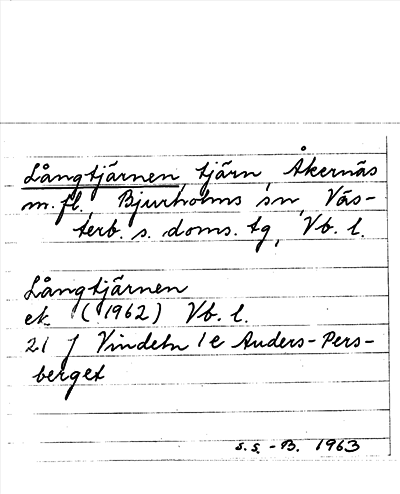 Långtjärnen, tjärn, Åkernäs
m. fl., Bjurholms sn, Väs-
terb. s. doms. tg, Vb. l.
Långtjärnen
ek. (1962) Vb. l.
21 J Vindeln 1e Anders-Pers-
berget
s. s. - B. 1963